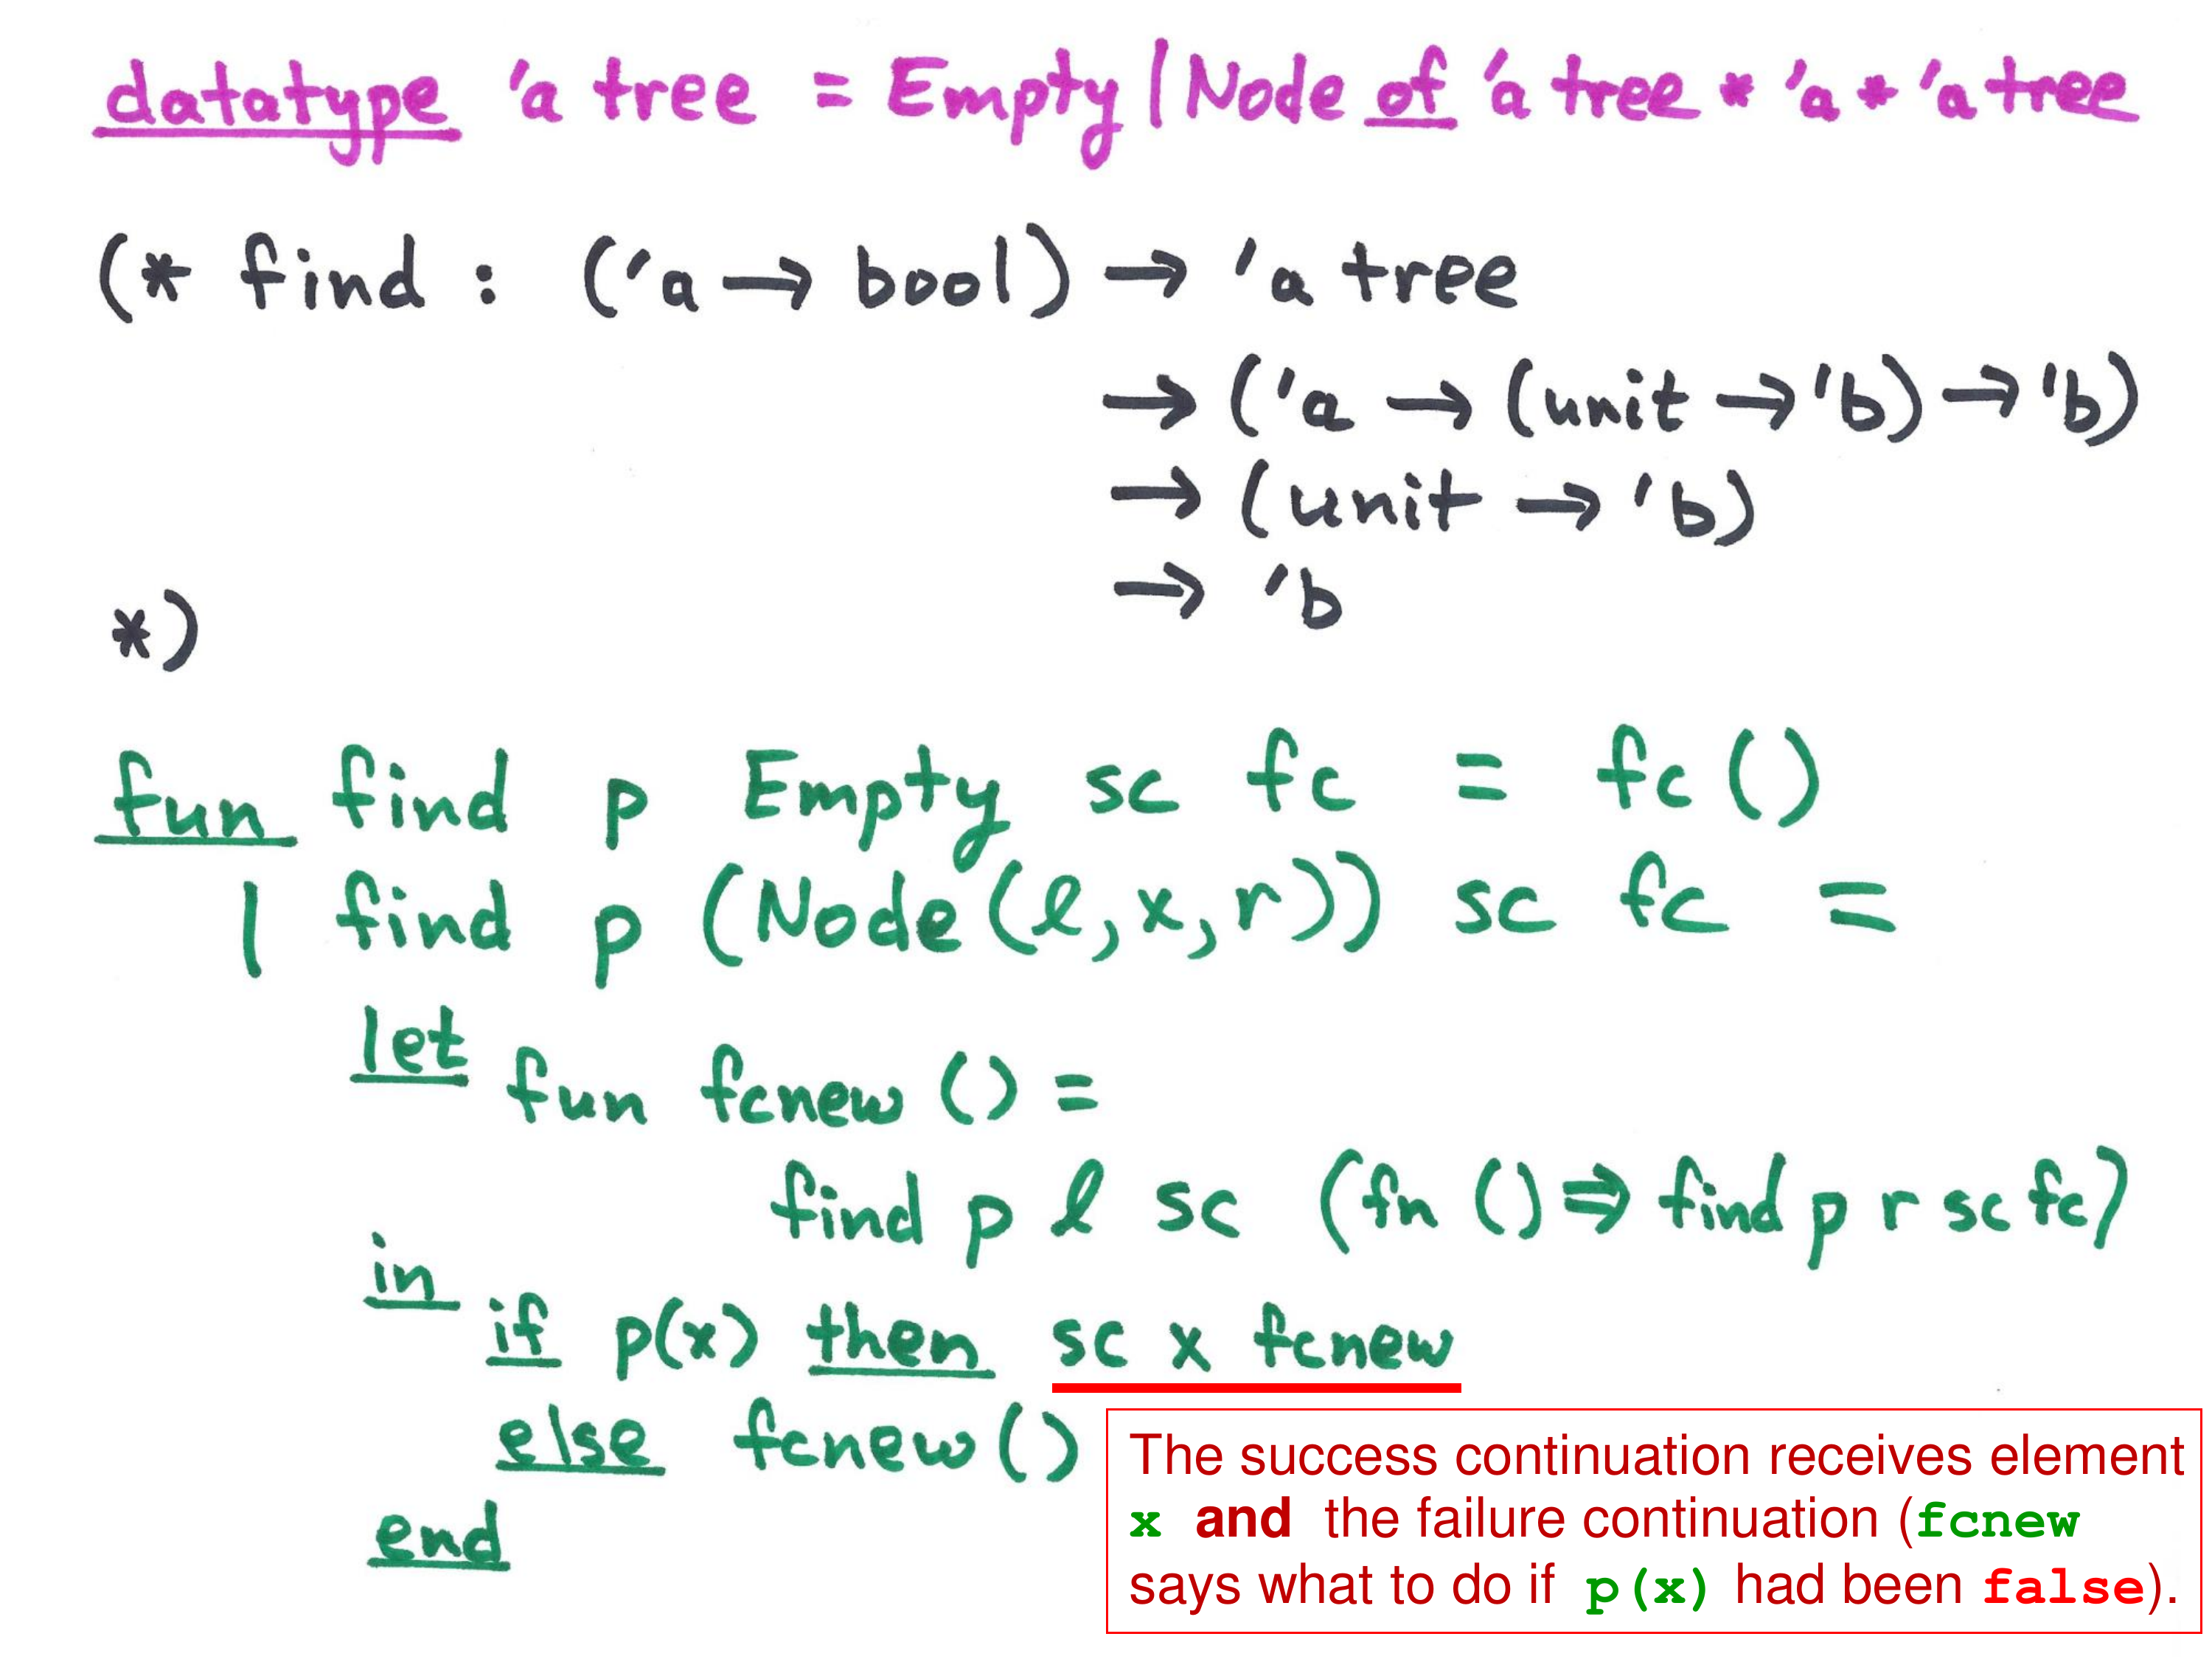 datatype 'a tree = Empty | Node of 'a tree * 'a * 'a tree
(* find : ('a → bool) → 'a tree
→ ('a → (unit → 'b) → 'b)
→ (unit → 'b)
→ 'b
*)
fun find p Empty sc fc = fc ()
| find p (Node(l,x,r)) sc fc =
let fun fcnew () =
find p l sc (fn () ⇒ find p r sc fc)
in if p(x) then sc x fcnew
else fcnew ()
end
The success continuation receives element
x and the failure continuation (fcnew
says what to do if p(x) had been false).